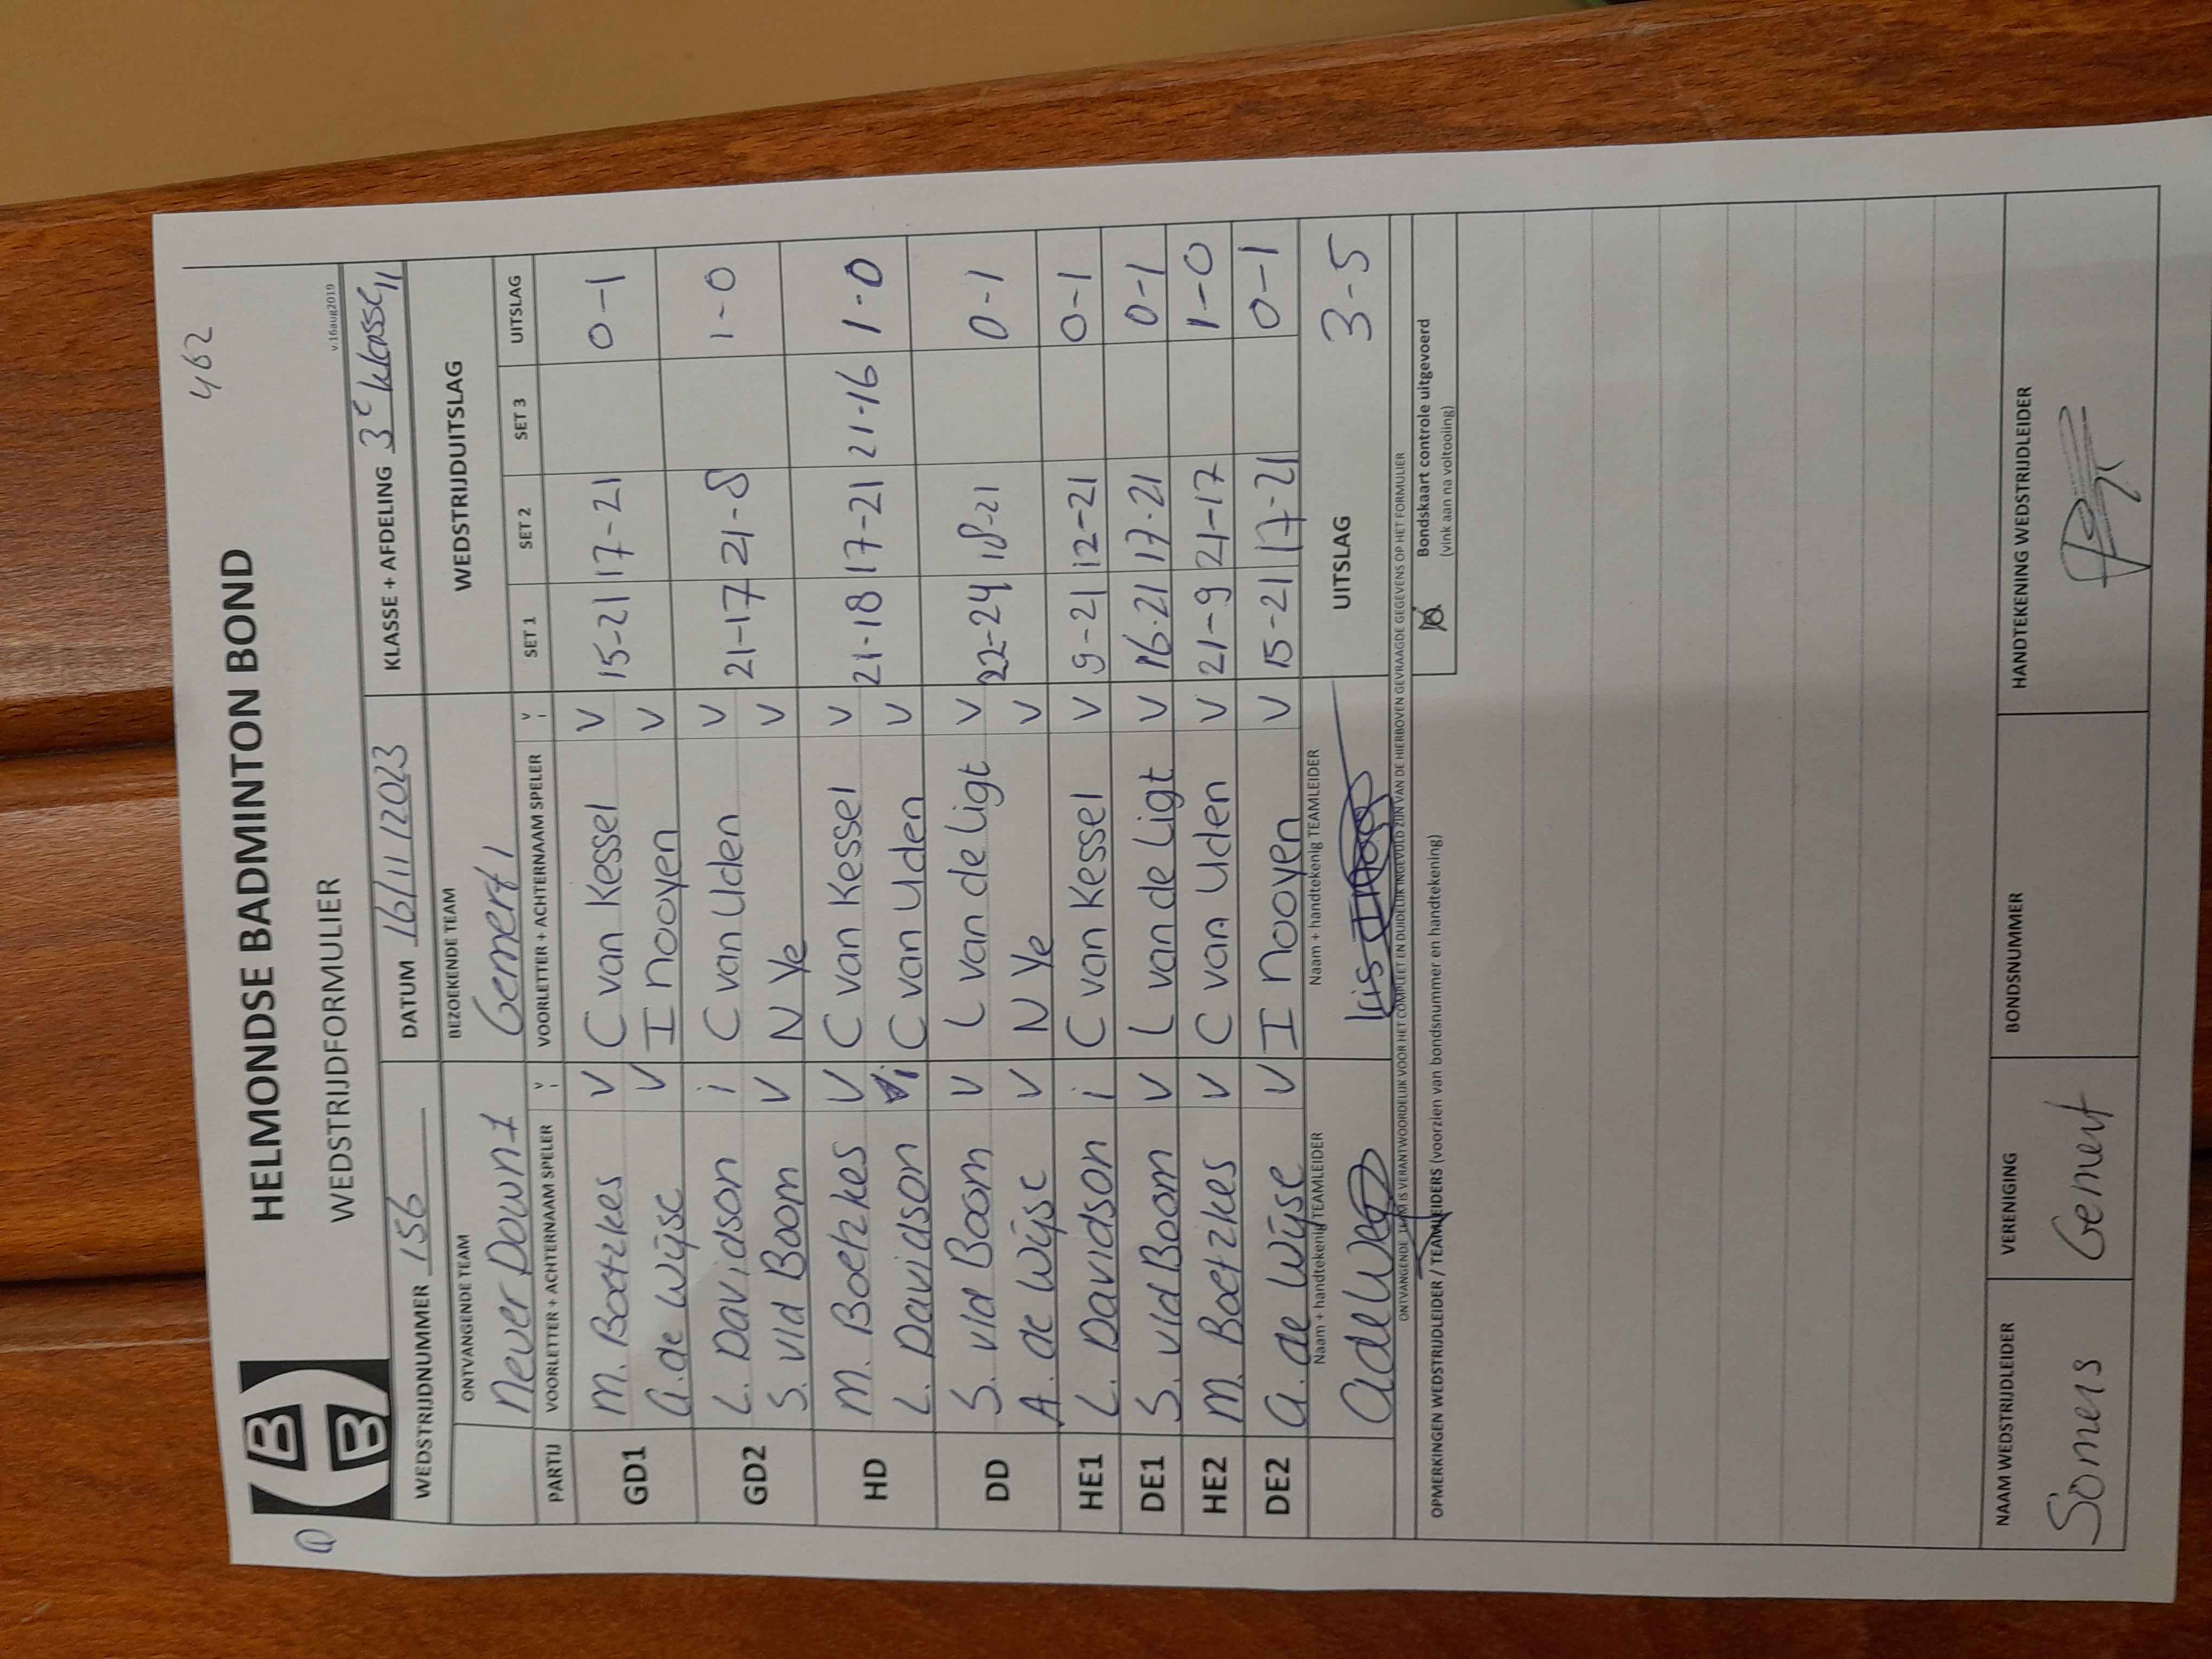 462
HELMONDSE BADMINTON BOND
WEDSTRIJDFORMULIER
v.16aug2019
WEDSTRIJDNUMMER 156 DATUM 16/11/2023 KLASSE + AFDELING 3e klasse
ONTVANGENDE TEAM BEZOEKENDE TEAM WEDSTRIJDUITSLAG
Never Down 1 Gemert 1
PARTIJ VOORLETTER + ACHTERNAAM SPELER V I VOORLETTER + ACHTERNAAM SPELER V I SET 1 SET 2 SET 3 UITSLAG
GD1 M. Boetzkes V C van Kessel V 15-21 17-21 0-1
A. de Wijse V I nooyen V
GD2 L. Davidson i C van Uden V 21-17 21-8 1-0
S. v/d Boom V N Ye V
HD M. Boetzkes V C van Kessel V 21-18 17-21 21-16 1-0
L. Davidson i C van Uden V
DD S. v/d Boom V L van de Ligt V 22-24 18-21 0-1
A. de Wijse V N Ye V
HE1 L. Davidson i C van Kessel V 9-21 12-21 0-1
DE1 S. v/d Boom V L van de Ligt V 16-21 17-21 0-1
HE2 M. Boetzkes V C van Uden V 21-9 21-17 1-0
DE2 A. de Wijse V I nooyen V 15-21 17-21 0-1
Naam + handtekenig TEAMLEIDER Naam + handtekenig TEAMLEIDER UITSLAG 3-5
ONTVANGENDE TEAM IS VERANTWOORDELIJK VOOR HET COMPLEET EN DUIDELIJK INGEVULD ZIJN VAN DE HIERBOVEN GEVRAAGDE GEGEVENS OP HET FORMULIER
OPMERKINGEN WEDSTRIJDLEIDER / TEAMLEIDERS (voorzien van bondsnummer en handtekening)
Bondskaart controle uitgevoerd
(vink aan na voltooiing)
NAAM WEDSTRIJDLEIDER VERENIGING BONDSNUMMER HANDTEKENING WEDSTRIJDLEIDER
Somers Gemert